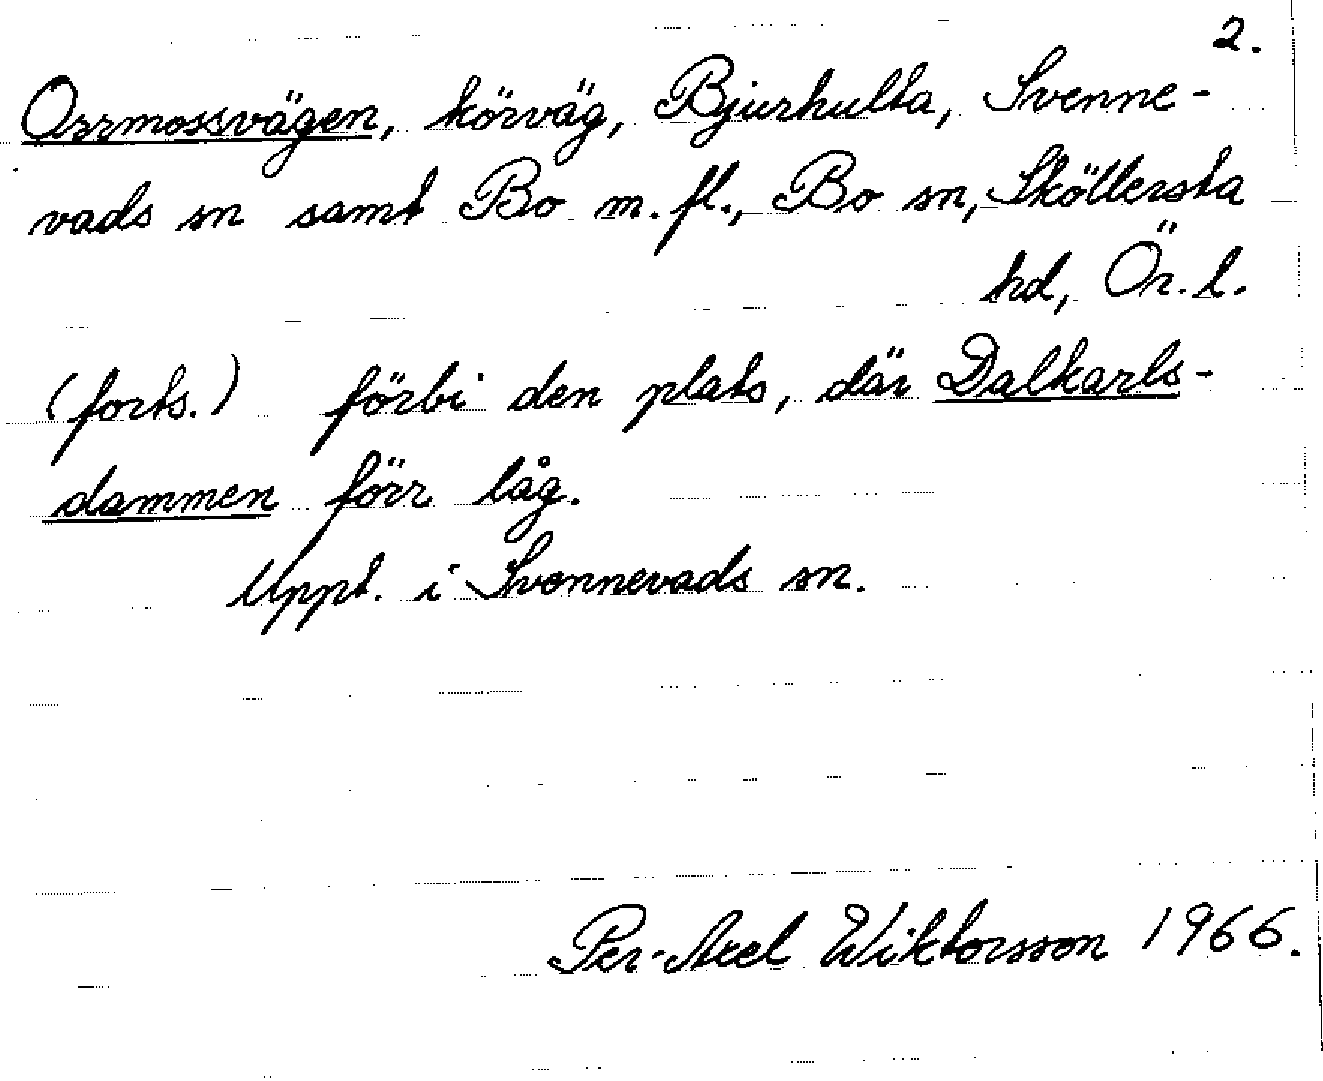 2.
Orrmossvägen, körväg, Bjurhulta, Svenne-
vads sn samt Bo m.fl., Bo sn, Sköllersta
hd, Ör. l.
(forts.) förbi den plats, där Dalkarls-
dammen förr låg.
Uppt. i Svennevads sn.
Per-Axel Wiktorsson 1966.